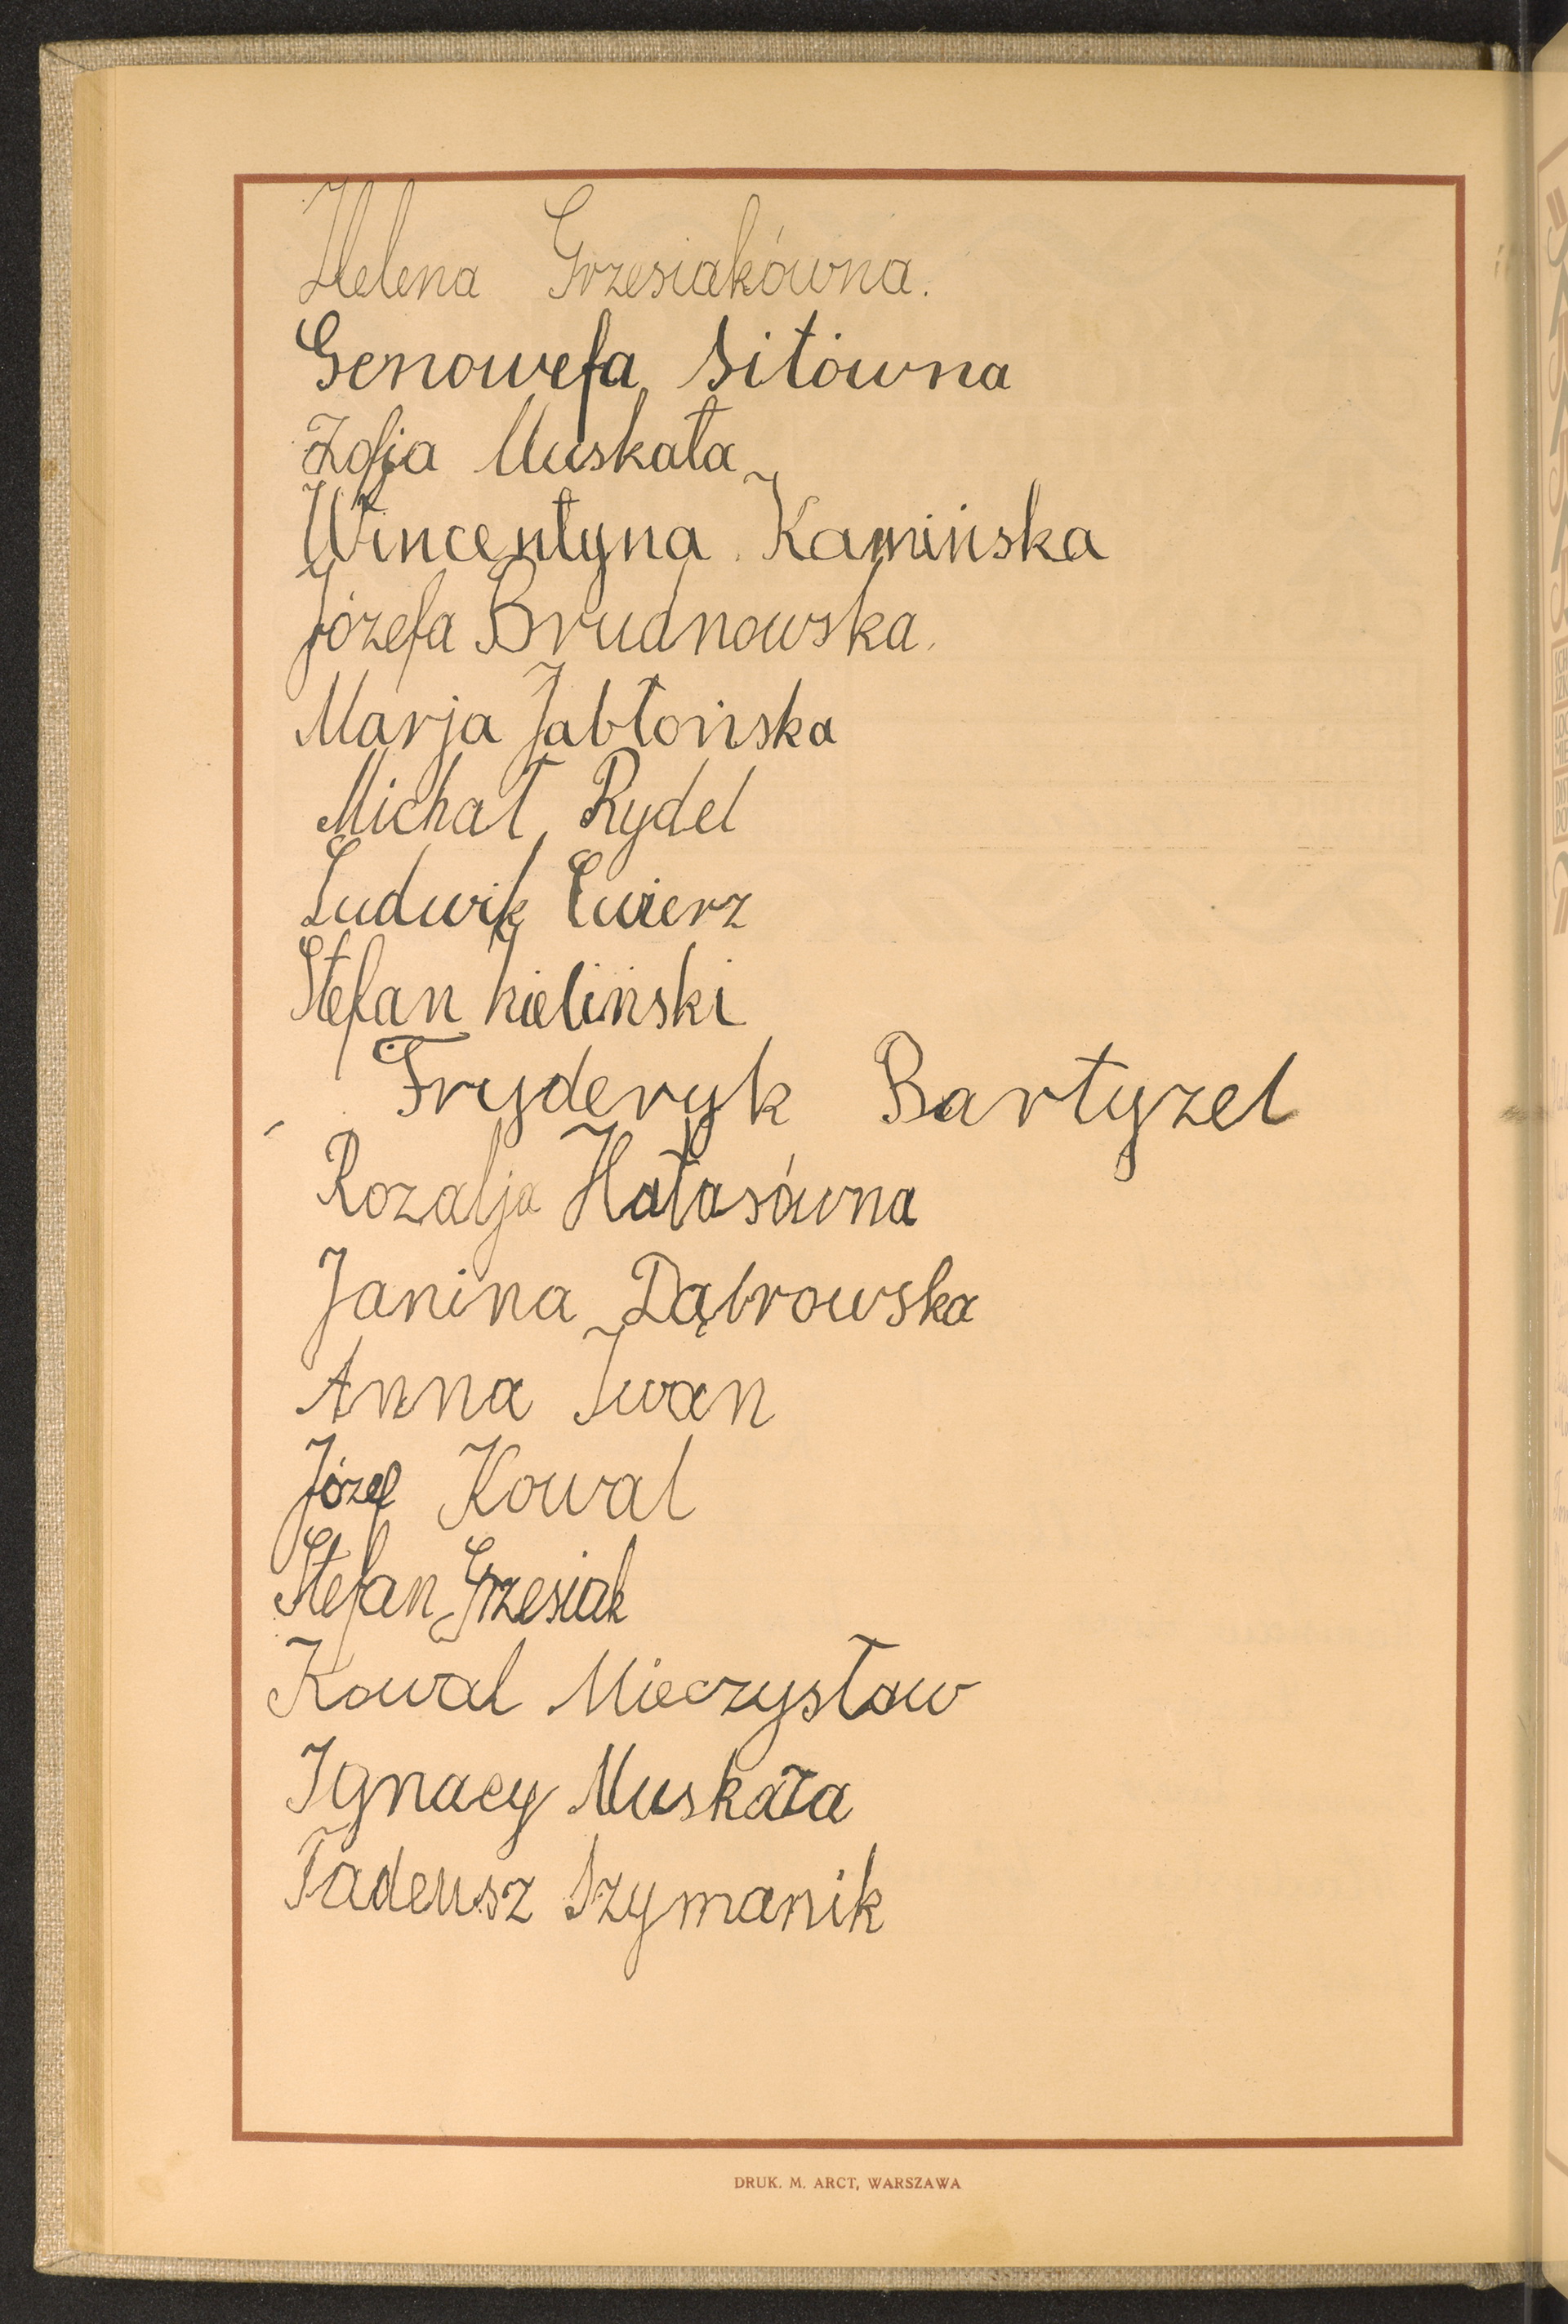 Helena Grzesiakówna.
Genowefa Sitówna
Zofja Muskała
Wincentyna Kamińska
Józefa Brudnowska.
Marja Jabłońska
Michał Rydel
Ludwik Ćwierz
Stefan Zieliński
Fryderyk Bartyzel
Rozalja Hałasówna
Janina Dąbrowska
Anna Iwan
Józef Kowal
Stefan Grzesiak
Kowal Mieczysław
Ignacy Muskała
Tadeusz Szymanik
DRUK. M. ARCT, WARSZAWA